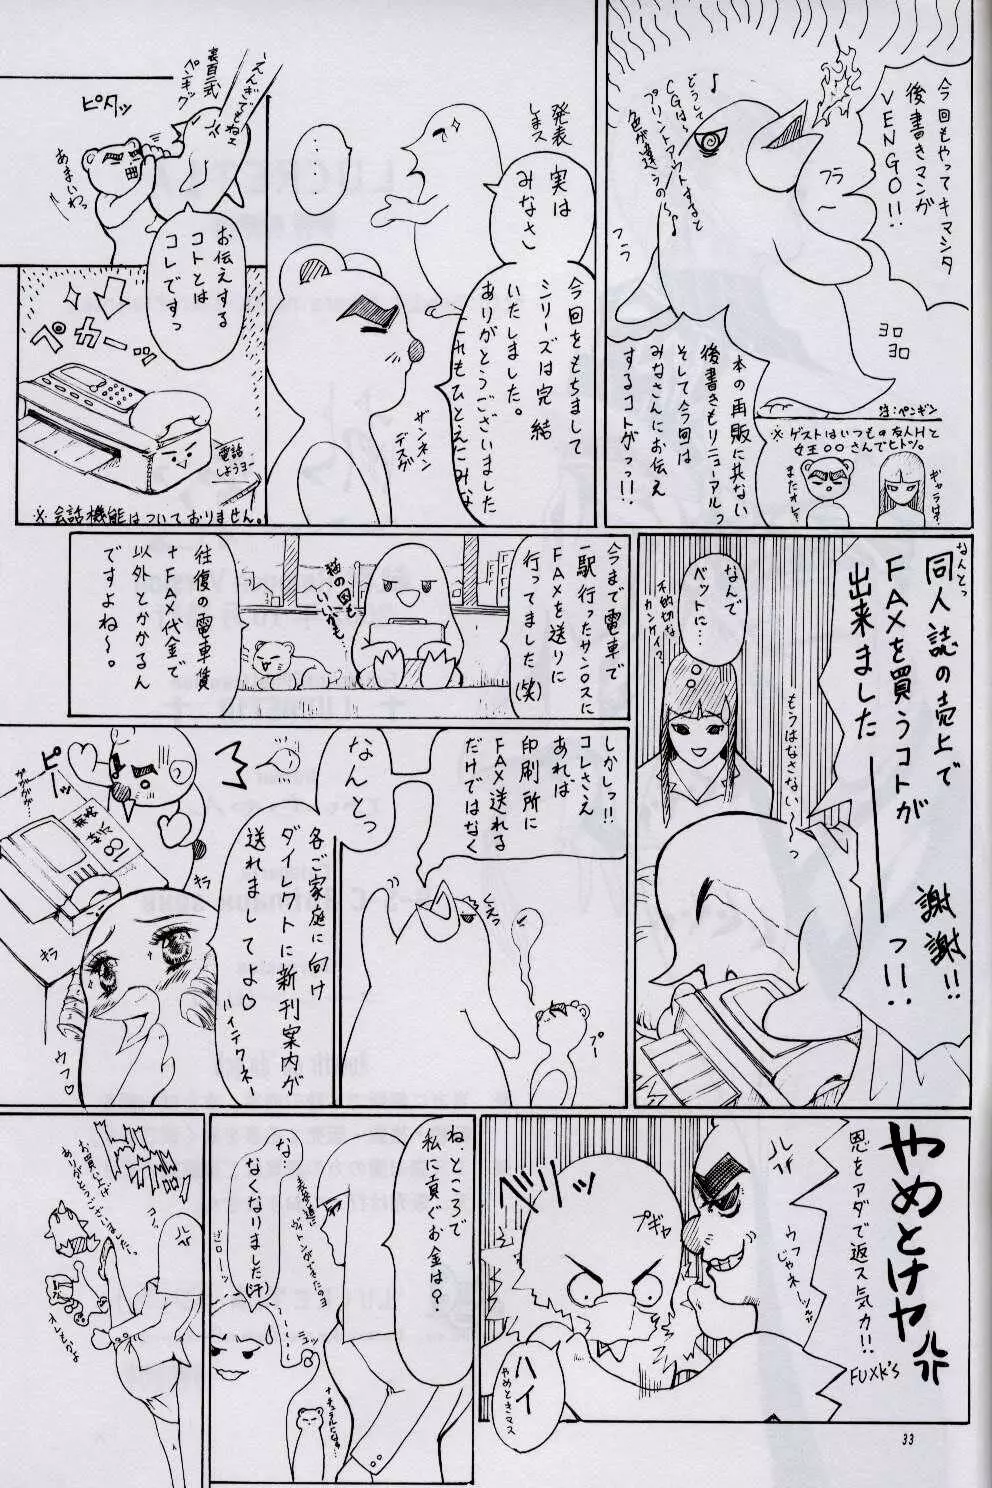 今回もやってキマシタ
後書きマンが
VENGO!!
フラ
〜
どうして
CGは〜
プリントアウトすると
色が違うの〜♪
フラ
ヨロ
ヨロ
注:ペンギン
本の再販に共ない
後書きもリニューアルっ
そして今回は
みなさんにお伝え
するコトがっっ!!
※ゲストはいつもの友人Hと
女王○○さんでヒトツ。
ギャラは?
またオレ?
発表
しまス
実は
みなさん
今回をもちまして
シリーズは完結
いたしました。
ありがとうございました
これもひとえにみな
ザンネン
デスゲ
えんぎでもねェ
裏百二式
ペンギング
ピタッ
あまいわっ
お伝えする
コトとは
コレですっ
ペカーッ
電話
しようヨー
※会話機能はついておりません。
なんとっ
同人誌の売上で
FAXを買うコトが
出来ました――っ!!
謝謝!!
なんで
ベットに…
不適切な
カンケイ?
もうはなさない〜っ
今まで電車で
一駅行ったサンロスに
FAXを送りに
行ってました(笑)
猫の図も
いいかも…
往復の電車賃
+FAX代金で
以外とかかるん
ですよね〜。
しかしっ!!
コレさえ
あれば
印刷所に
FAX送れる
だけではなく
くえっ
プー
なんとっ
各ご家庭に向け
ダイレクトに新刊案内が
送れましてよ♡
ハイテクネー
ピーッ
18禁
キラ
キラ
ウフ♡
やめとけヤ
恩をアダで返ス気カ!!
FUXK'S
ウフじゃネー
プギャ
ハイ
やめときマス
ね、ところで
私に貢ぐお金は?
表参道に
ヴィトンができたのヨ
な…
なくなりました(汗)
ギローン
ニュッ
ナチュラルになぁ…
ドガガッ
お買い上げ
ありがとうございましたっ。
オレもかよ
33